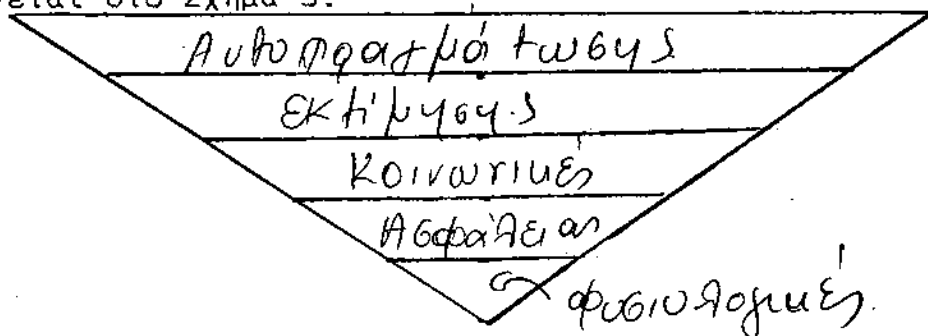 εται στο Σχήμα 3.
Αυτοπραγμάτωσης
Εκτίμησης
Κοινωνικές
Ασφάλειας
Φυσιολογικές.